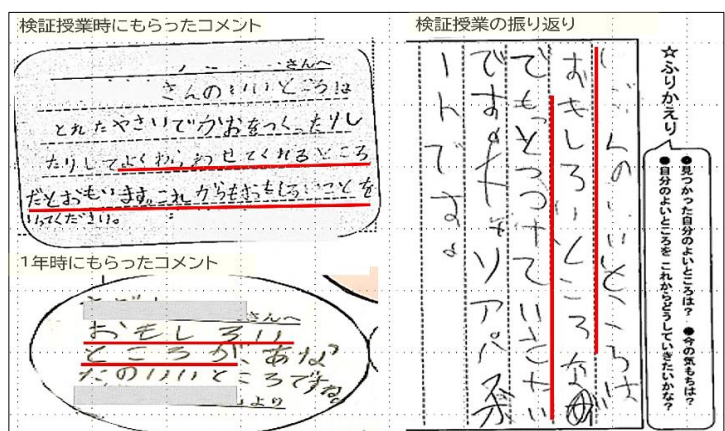 検証授業時にもらったコメント
さんへ
さんのいいところは
とれたやさいでかおをつくったりし
たりしてよくわらわせてくれるところ
だとおもいます。これからもおもしろいことを
いってください。
1年時にもらったコメント
さんへ
おもしろい
ところが、あな
たのいいところですね。
より
検証授業の振り返り
☆ふりかえり
●見つかった自分のよいところは? ●今の気もちは?
●自分のよいところを これからどうしていきたいかな?
じぶんのいいところは
おもしろいところなので
でもっとつづけていきたい
です。
ートです。